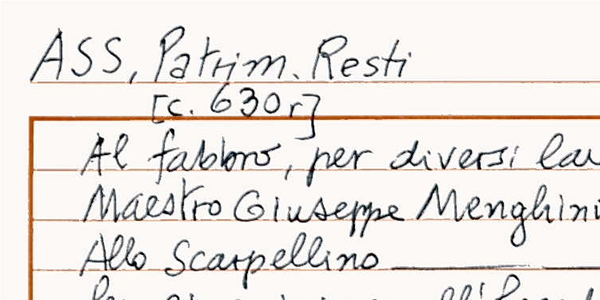 ASS, Patrim. Resti
[c. 630r]
Al fabbro, per diversi
Maestro Giuseppe Menghini
Allo Scarpellino